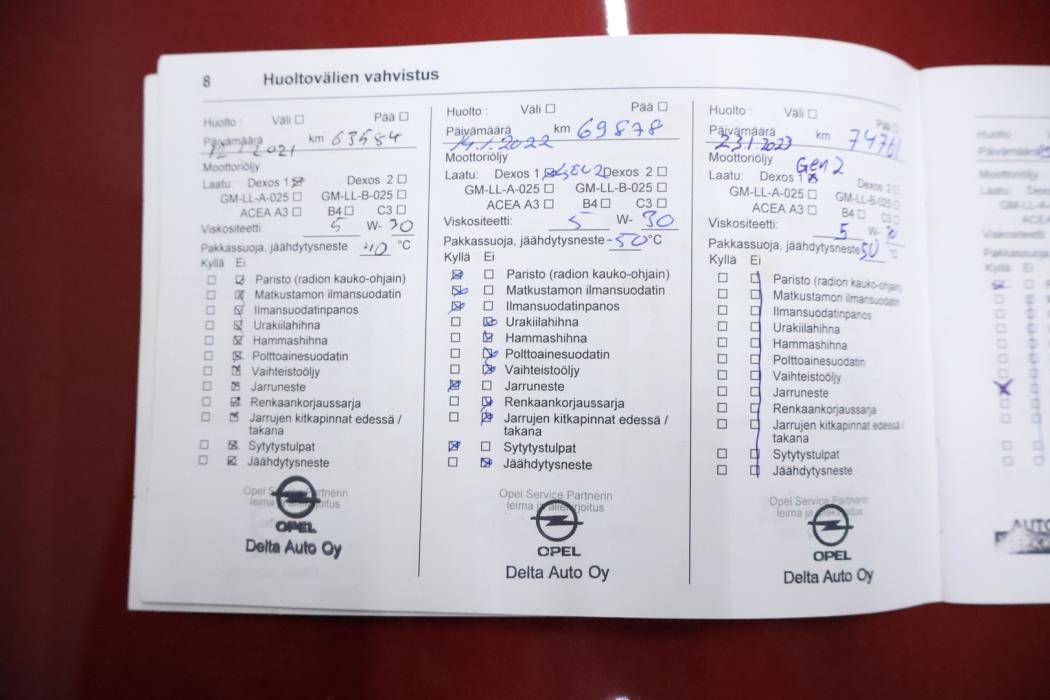 8 Huoltovälien vahvistus
Huolto : Väli ☐ Pää ☐
Päivämäärä 2021 km 63584
Moottoriöljy
Laatu: Dexos 1 ☒ Dexos 2 ☐
GM-LL-A-025 ☐ GM-LL-B-025 ☐
ACEA A3 ☐ B4 ☐ C3 ☐
Viskositeetti: 5 W- 30
Pakkassuoja, jäähdytysneste 40 °C
Kyllä Ei
☐ ☒ Paristo (radion kauko-ohjain)
☐ ☒ Matkustamon ilmansuodatin
☐ ☒ Ilmansuodatinpanos
☐ ☒ Urakiilahihna
☐ ☒ Hammashihna
☐ ☒ Polttoainesuodatin
☐ ☒ Vaihteistoöljy
☐ ☒ Jarruneste
☐ ☒ Renkaankorjaussarja
☐ ☒ Jarrujen kitkapinnat edessä /
takana
☐ ☒ Sytytystulpat
☐ ☒ Jäähdytysneste
Opel Service Partnerin
leima ja allekirjoitus
OPEL
Delta Auto Oy
Huolto : Väli ☐ Pää ☐
Päivämäärä 14.1.2022 km 69878
Moottoriöljy
Laatu: Dexos 1 ☒ GEN2 Dexos 2 ☐
GM-LL-A-025 ☐ GM-LL-B-025 ☐
ACEA A3 ☐ B4 ☐ C3 ☐
Viskositeetti: 5 W- 30
Pakkassuoja, jäähdytysneste -50 °C
Kyllä Ei
☒ ☐ Paristo (radion kauko-ohjain)
☒ ☐ Matkustamon ilmansuodatin
☒ ☐ Ilmansuodatinpanos
☐ ☒ Urakiilahihna
☐ ☒ Hammashihna
☐ ☒ Polttoainesuodatin
☐ ☒ Vaihteistoöljy
☒ ☐ Jarruneste
☐ ☒ Renkaankorjaussarja
☐ ☒ Jarrujen kitkapinnat edessä /
takana
☒ ☐ Sytytystulpat
☐ ☒ Jäähdytysneste
Opel Service Partnerin
leima ja allekirjoitus
OPEL
Delta Auto Oy
Huolto : Väli ☐ Pää ☐
Päivämäärä 23.1.2023 km 74761
Moottoriöljy Gen 2
Laatu: Dexos 1 ☒ Dexos 2 ☐
GM-LL-A-025 ☐ GM-LL-B-025 ☐
ACEA A3 ☐ B4 ☐ C3 ☐
Viskositeetti: 5 W-
Pakkassuoja, jäähdytysneste 50 °C
Kyllä Ei
☐ ☐ Paristo (radion kauko-ohjain)
☐ ☐ Matkustamon ilmansuodatin
☐ ☐ Ilmansuodatinpanos
☐ ☐ Urakiilahihna
☐ ☐ Hammashihna
☐ ☐ Polttoainesuodatin
☐ ☐ Vaihteistoöljy
☐ ☐ Jarruneste
☐ ☐ Renkaankorjaussarja
☐ ☐ Jarrujen kitkapinnat edessä /
takana
☐ ☐ Sytytystulpat
☐ ☐ Jäähdytysneste
Opel Service Partnerin
leima ja allekirjoitus
OPEL
Delta Auto Oy
Huolto :
Päivämäärä
Moottoriöljy
Kyllä Ei
AUTO